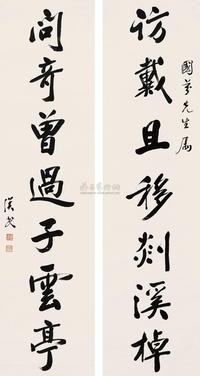 訪戴且移剡溪棹
國華先生屬
問奇曾過子雲亭
漢民